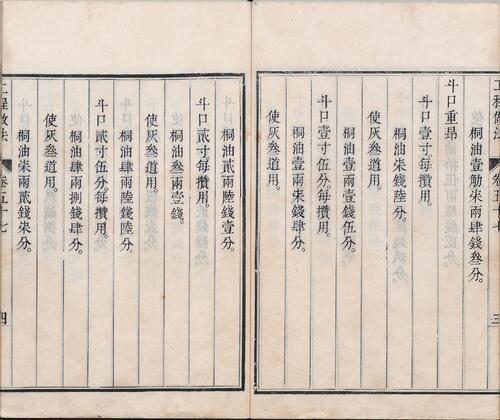 工程做法
卷五十七
三
桐油壹觔柒兩肆錢叁分。
斗口重昻
斗口壹寸每攢用。
桐油柒錢陸分。
使灰叁道用。
桐油壹兩壹錢伍分。
斗口壹寸伍分每攢用。
桐油壹兩柒錢肆分。
使灰叁道用。
桐油貳兩陸錢壹分。
斗口貳寸每攢用。
桐油叁兩壹錢。
使灰叁道用。
桐油肆兩陸錢陸分。
斗口貳寸伍分每攢用。
桐油肆兩捌錢肆分。
使灰叁道用。
桐油柒兩貳錢柒分。
工程做法
卷五十七
四